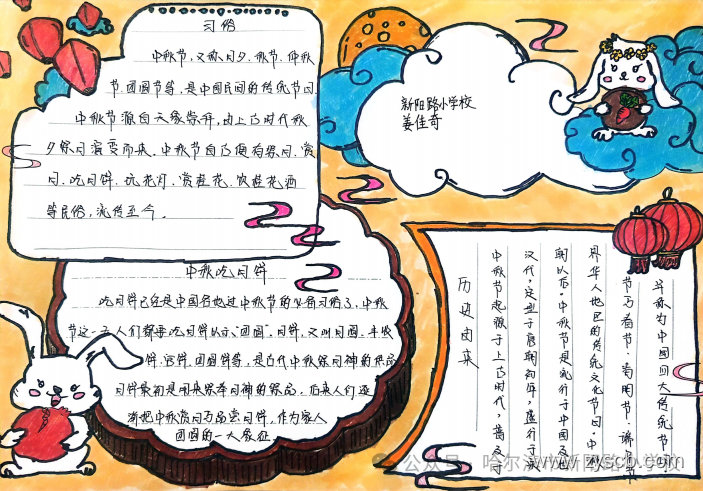 习俗
中秋节，又称月夕、秋节、仲秋
节、团圆节等，是中国民间的传统节日
中秋节源自天象崇拜，由上古时代秋
夕祭月演变而来。中秋节自古便有祭月、赏
月、吃月饼、玩花灯、赏桂花、饮桂花酒
等民俗，流传至今。
新阳路小学校
姜佳奇
中秋吃月饼
吃月饼已经是中国各地过中秋节的必备习俗了，中秋
节这一天人们都要吃月饼以示"团圆"。月饼，又叫月团、丰收
饼、宫饼、团圆饼等，是古代中秋祭拜月神的供品
月饼最初是用来祭奉月神的祭品，后来人们逐
渐把中秋赏月与品尝月饼，作为家人
团圆的一大象征。
历史由来
中秋节起源于上古时代，普及于
汉代，定型于唐朝初年，盛行于宋
朝以后。中秋节是流行于中国及世
界华人地区的传统文化节日，中秋
节与春节、清明节、端午节
并称为中国四大传统节
公众号
www.zyscb.com